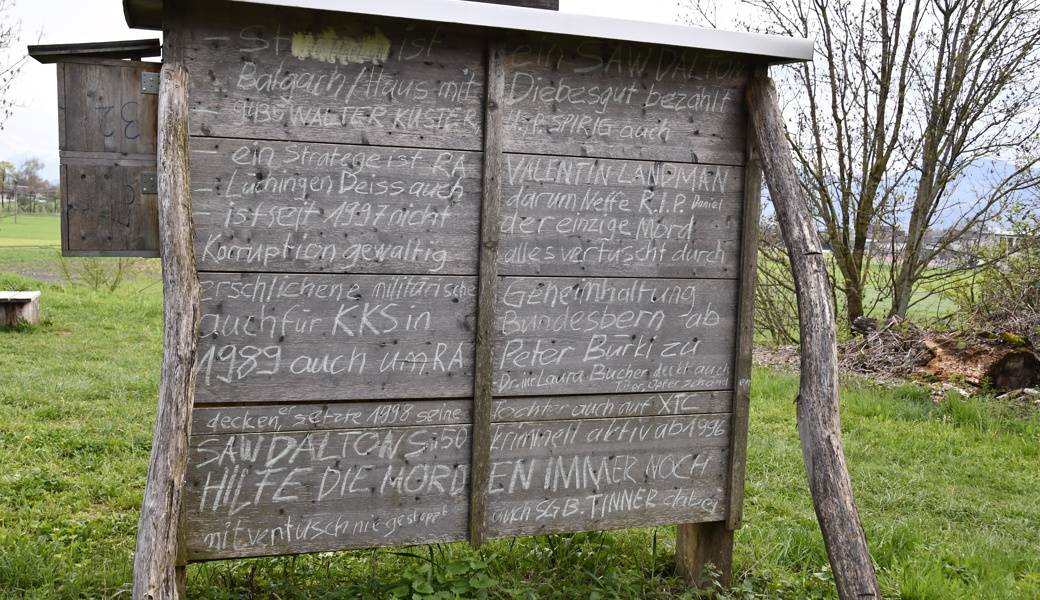 - St ist ein SAW DALTON
Balgach/Haus mit Diebesgut bezahlt
- 9436 WALTER KÜSTER, H.P. SPIRIG auch
- ein Stratege ist RA VALENTIN LANDMAN
- Lüchingen Deiss auch darum Neffe R.I.P. Daniel
- ist seit 1997 nicht der einzige Mord
Korruption gewaltig alles vertuscht durch
erschlichene militärische Geheimhaltung
auch für KKS in Bundesbern - ab
1989 auch um RA Peter Bürki zu
Dr. iur Laura Bucher deckt auch
Täter, Opfer zuhanden
decken, er setzte 1998 seine Tochter auch auf XTC
SAW DALTONS 50 kriminell aktiv ab 1996
HILFE DIE MORDEN IMMER NOCH
mit vertusch nie gestoppt auch SG B. TINNER dabei
32